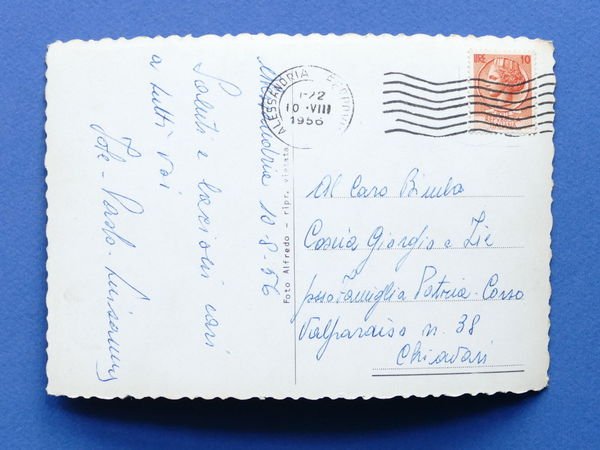 Alessandria 10-8-56
Saluti e bacioni cari
a tutti voi
ALESSANDRIA FERROVIA
1-22
10·VIII
1956
LIRE 10
Foto Alfredo - ripr. vietata
Al Caro Bimbo
Giorgio e Zie
presso Famiglia Patria - Corso
Valparaiso n. 38
Chiavari